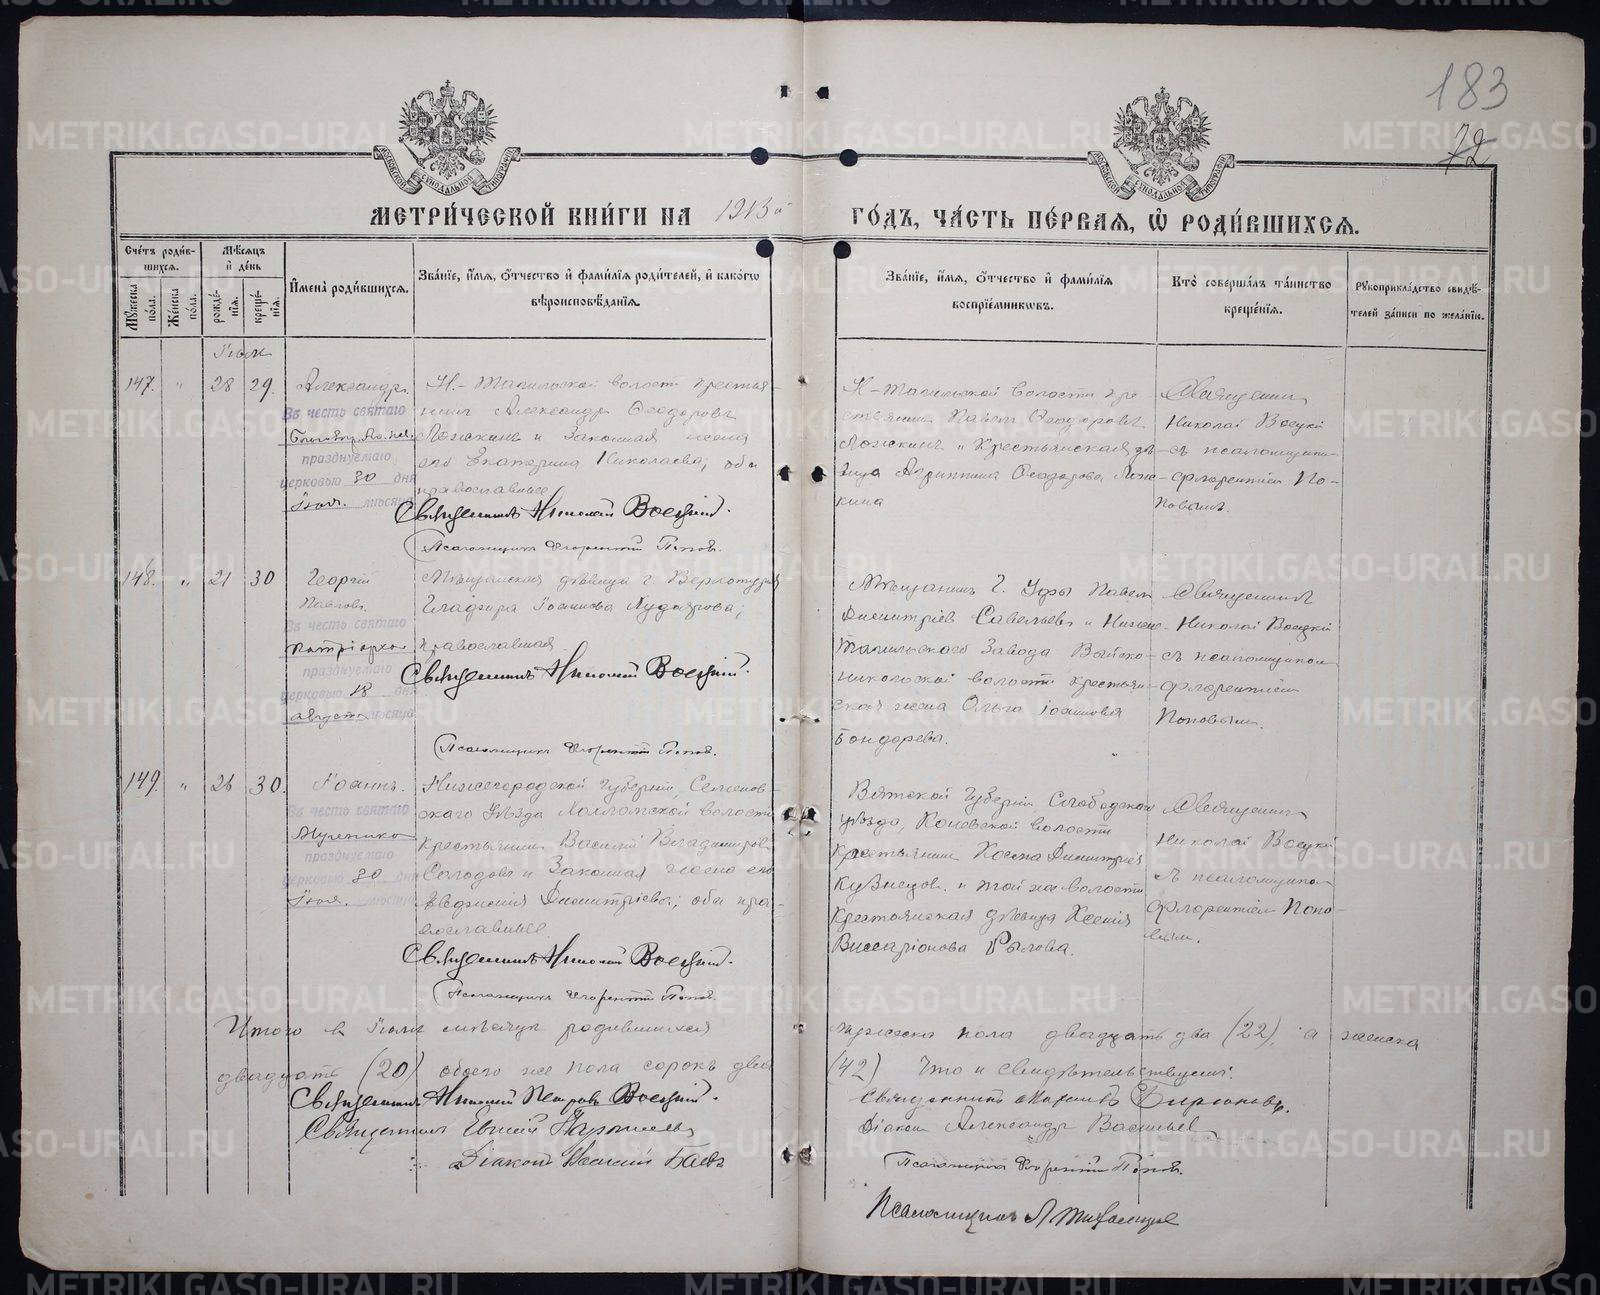 183
72
МЕТРИ́ЧЕСКОЙ КНИ́ГИ НА 1913й ГО́ДЪ, ЧА́СТЬ ПЕ́РВАЯ, Ѡ҆ РОДИ́ВШИХСѦ.
Сче́тъ роди́в-
шихсѧ.
Мѣ́сѧцъ
и҆ де́нь
Мꙋ́жеска по́ла.
Же́нска по́ла.
рожде́-
нїѧ.
креще́-
нїѧ.
И҆мена̀ роди́вшихсѧ.
Зва́нїе, и҆́мѧ, ѻ҆́тчество и҆ фами́лїѧ роди́телей, и҆ како́гѡ
вѣроисповѣ́данїѧ.
Зва́нїе, и҆́мѧ, ѻ҆́тчество и҆ фами́лїѧ
воспрїе́мникѡвъ.
Кто̀ соверша́лъ та́инство
креще́нїѧ.
Рꙋкоприкла́дство свидѣ́-
телей за́писи по жела́нїю.
Іюль
147. " 28 29.
Александръ.
Въ честь святаго
празднуемаго
церковью 30 дня
Іюля. мѣсяца
Н.-Тагильской волости крестья-
нинъ Александръ Ѳеодоровъ
Ложкинъ и Законная жена
его Екатерина Николаева; оба
православные
Священникъ Николай Воецкій.
Псаломщикъ Флорентій Поповъ.
Н-Тагильской волости кре
стьянинъ Павелъ Ѳеодоровъ
Ложкинъ и Крестьянская дѣ-
вица Агриппина Ѳеодорова Лож-
кина
Священникъ
Николай Воецкій
съ псаломщи-
Флорентіемъ По-
повымъ.
148. " 21 30
Георгій
Павловъ.
Въ честь святаго
патріарха
празднуемаго
церковью 18 дня
августа мѣсяца
Мѣщанская дѣвица г. Верхотурья
Глафира Іоаннова
православная
Священникъ Николай Воецкій.
Псаломщикъ Флорентій Поповъ.
Мѣщанинъ г. Уфы Павелъ
Димитріевъ Савельевъ и Нижне-
Тагильскаго Завода Выйско-
никольской волости крестьян-
ская жена Ольга Іоаннова
Бондарева.
Священникъ
Николай Воецкій
съ псаломщикомъ
Флорентіемъ
Поповымъ.
149. " 26 30.
Іоаннъ.
Въ честь святаго
Мученика
празднуемаго
церковью 30 дня
Іюля. мѣсяца
Нижегородской губерніи, Семенов-
скаго уѣзда волости
крестьянинъ Василій Владиміровъ
Солодовъ и Законная жена его
Евдокія Димитріева; оба пра-
вославные.
Священникъ Николай Воецкій.
Псаломщикъ Флорентій Поповъ.
Вятской губерніи Слободского
уѣзда, волости
крестьянинъ Димитріевъ
Кузнецовъ и той же волости
Крестьянская дѣвица Ксенія
Виссаріонова Рылова.
Священникъ
Николай Воецкій
съ псаломщикомъ
Флорентіемъ Попо-
вымъ.
Итого въ Іюлѣ мѣсяцѣ родившихся мужеска пола двадцать два (22), а женска
двадцать (20) обоего же пола сорокъ два (42) Что и свидѣтельствуемъ:
Священникъ Николай Петровъ Воецкій.
Священникъ
Діаконъ
Священникъ
Діаконъ Александръ Васильевъ
Псаломщикъ Флорентій Поповъ.
Псаломщикъ
METRIKI.GASO-URAL.RU